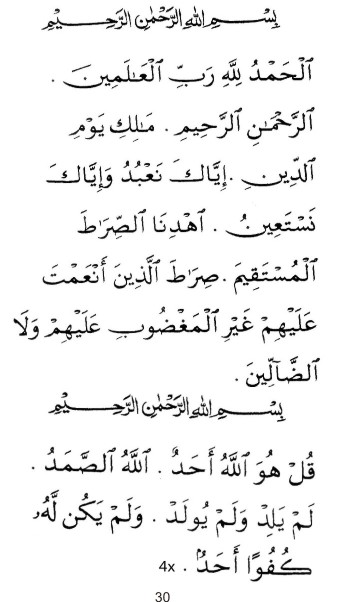 بِسْمِ اللهِ الرَّحْمٰنِ الرَّحِيْمِ
ٱلْحَمْدُ لِلَّهِ رَبِّ ٱلْعَـٰلَمِينَ .
ٱلرَّحْمَـٰنِ ٱلرَّحِيمِ . مَـٰلِكِ يَوْمِ
ٱلدِّينِ . إِيَّاكَ نَعْبُدُ وَإِيَّاكَ
نَسْتَعِينُ . ٱهْدِنَا ٱلصِّرَاطَ
ٱلْمُسْتَقِيمَ . صِرَاطَ ٱلَّذِينَ أَنْعَمْتَ
عَلَيْهِمْ غَيْرِ ٱلْمَغْضُوبِ عَلَيْهِمْ وَلَا
ٱلضَّآلِّينَ .
بِسْمِ اللهِ الرَّحْمٰنِ الرَّحِيْمِ
قُلْ هُوَ ٱللَّهُ أَحَدٌ . ٱللَّهُ ٱلصَّمَدُ .
لَمْ يَلِدْ وَلَمْ يُولَدْ . وَلَمْ يَكُن لَّهُۥ
كُفُوًا أَحَدٌۢ . 4x
30